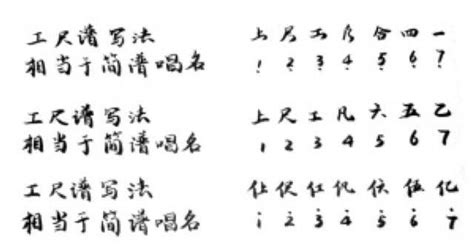 工尺谱写法 上 尺 工 凡 合 四 一
相当于简谱唱名 1̣ 2̣ 3̣ 4̣ 5̣ 6̣ 7̣
工尺谱写法 上 尺 工 凡 六 五 乙
相当于简谱唱名 1 2 3 4 5 6 7
工尺谱写法 仩 伬 仜 伍 亿
相当于简谱唱名 1̇ 2̇ 3̇ 4̇ 5̇ 6̇ 7̇